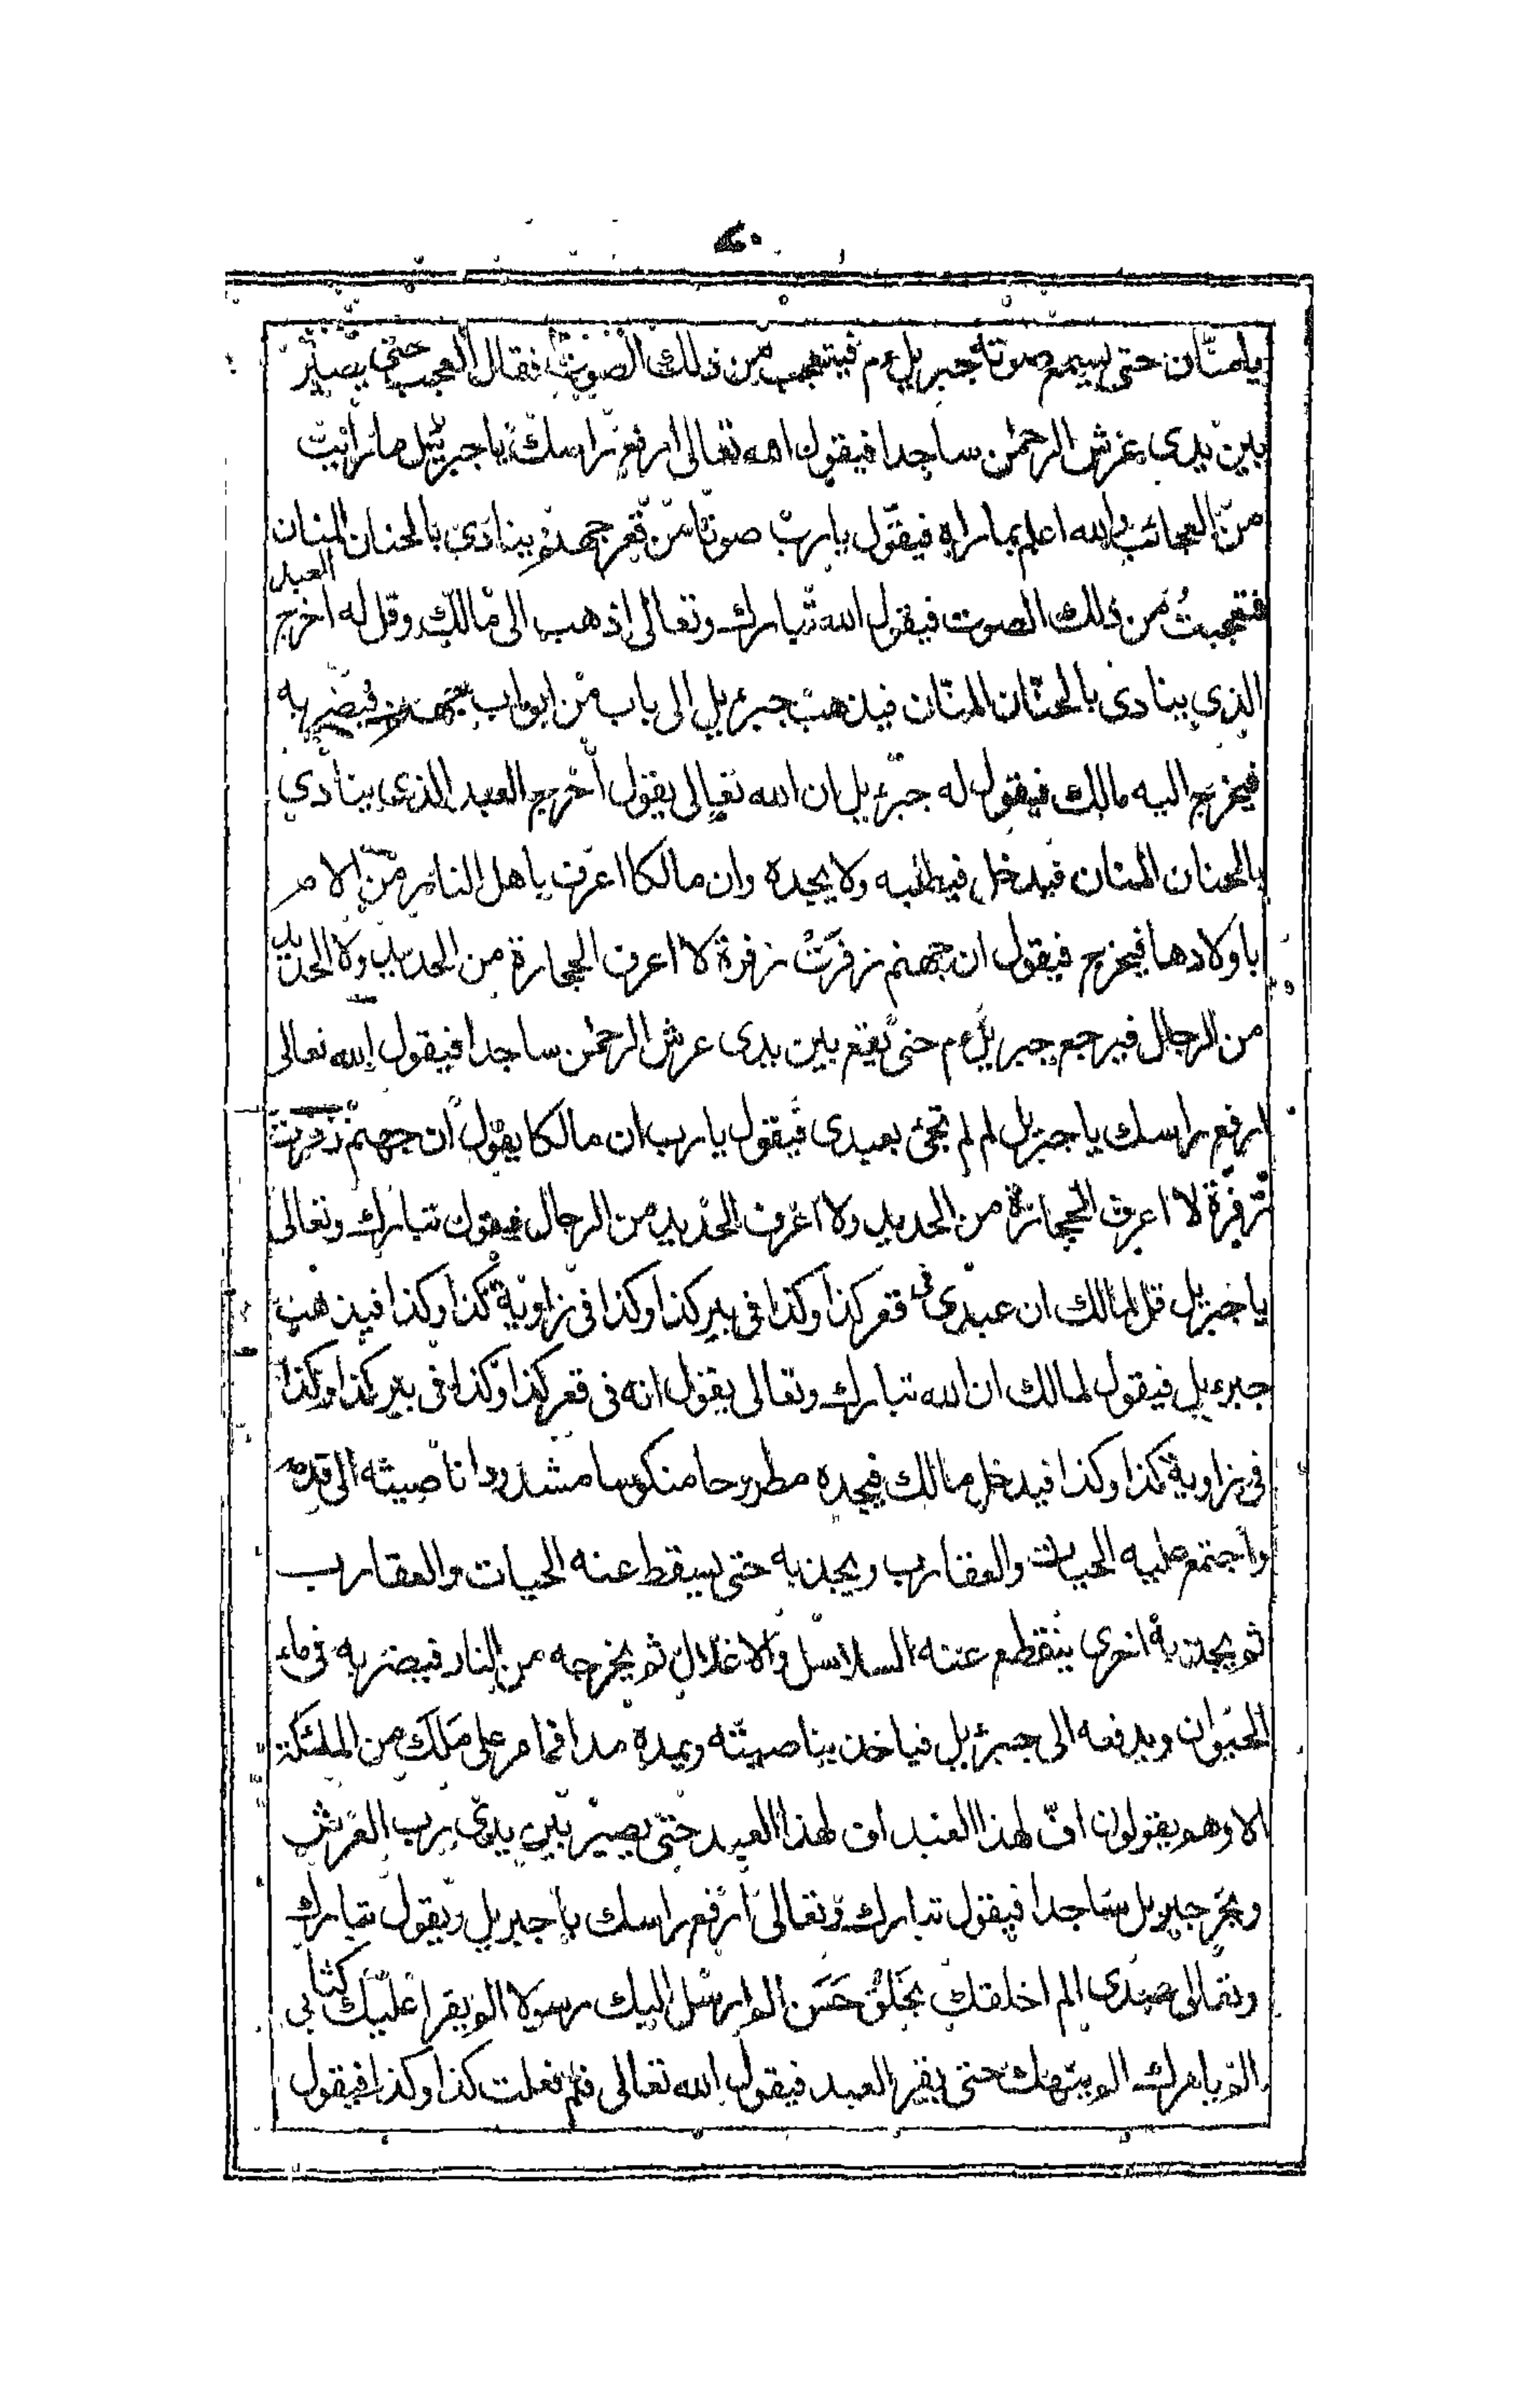 يا منّان حتى يسمع صوته جبريل ءم فيتعجب من ذلك الصوت فقال العجب حتى يصير
بين يدى عرش الرحمٰن ساجدا فيقول الله تعالى ارفع راسك يا جبرئيل ما رايت
من العجائب والله اعلم بما راه فيقول يا رب صوتا من قعر جهنم ينادى يا لحنان المنان
فتعجبت من ذلك الصوت فيقول الله تبارك وتعالى اذهب الى مالك وقل له اخرج العبد
الذي ينادى يا لحنّان المنّان فيذهب جبرءيل الى باب من ابواب جهنم فيضربه
فيخرج اليه مالك فيقول له جبرءيل ان الله تعالى يقول اخرج العبد الذى ينادي
يا لحنان المنان فيدخل فيطلبه ولا يجده وان مالكا اعرف باهل النار من الام
باولادها فيخرج فيقول ان جهنم زفرت زفرة لا اعرف الحجارة من الحديد ولا الحديد
من الرجال فيرجع جبريل ءم حتى يقع بين يدى عرش الرحمٰن ساجدا فيقول الله تعالى
ارفع راسك يا جبريل لم لم تجئ بعبدى فيقول يا رب ان مالكا يقول ان جهنم زفرت
زفرة لا اعرف الحجارة من الحديد ولا اعرف الحديد من الرجال فيقول تبارك وتعالى
يا جبريل قل لمالك ان عبدى فى قعر كذا وكذا فى بير كذا وكذا فى زاوية كذا وكذا فيذهب
جبرءيل فيقول لمالك ان الله تبارك وتعالى يقول انه فى قعر كذا وكذا فى بير كذا وكذا
فى زاوية كذا وكذا فيدخل مالك فيجده مطروحا منكوسا مشدودا ناصيته الى قدمه
واجتمع عليه الحيات والعقارب ويجذبه حتى يسقط عنه الحيات والعقارب
ثم يجذبه اخرى ينقطع عنه السلاسل والاغلال ثم يخرجه من النار فيضربه فى ماء
الحيوان ويدفعه الى جبرئيل فياخذ بناصيته ويمده مدا فما مر على مَلَك من الملئكة
الا وهم يقولون افّ لهذا العبد اف لهذا العبد حتى يصير بين يدى رب العرش
ويخر جبريل ساجدا فيقول تبارك وتعالى ارفع راسك يا جبريل ويقول تبارك
وتعالى عبدى الم اخلقك بخلق حسن الم ارسل اليك رسولا الم يقرا عليك كتابى
الم يامرك الم ينهك حتى يقر العبد فيقول الله تعالى فلم فعلت كذا وكذا فيقول